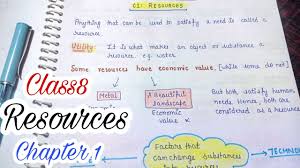 01: RESOURCES
Anything that can be used to satisfy a need is called a
resource.
Utility: It is what makes an object or substance a
resource. e.g. water.
Some resources have economic value, (while some do not)
Metal
A Beautiful
Landscape
Economic
value x
But both satisfy human
need, hence, both are
considered
Factors that
can change substances
TECHN
Class8
Resources
Chapter 1